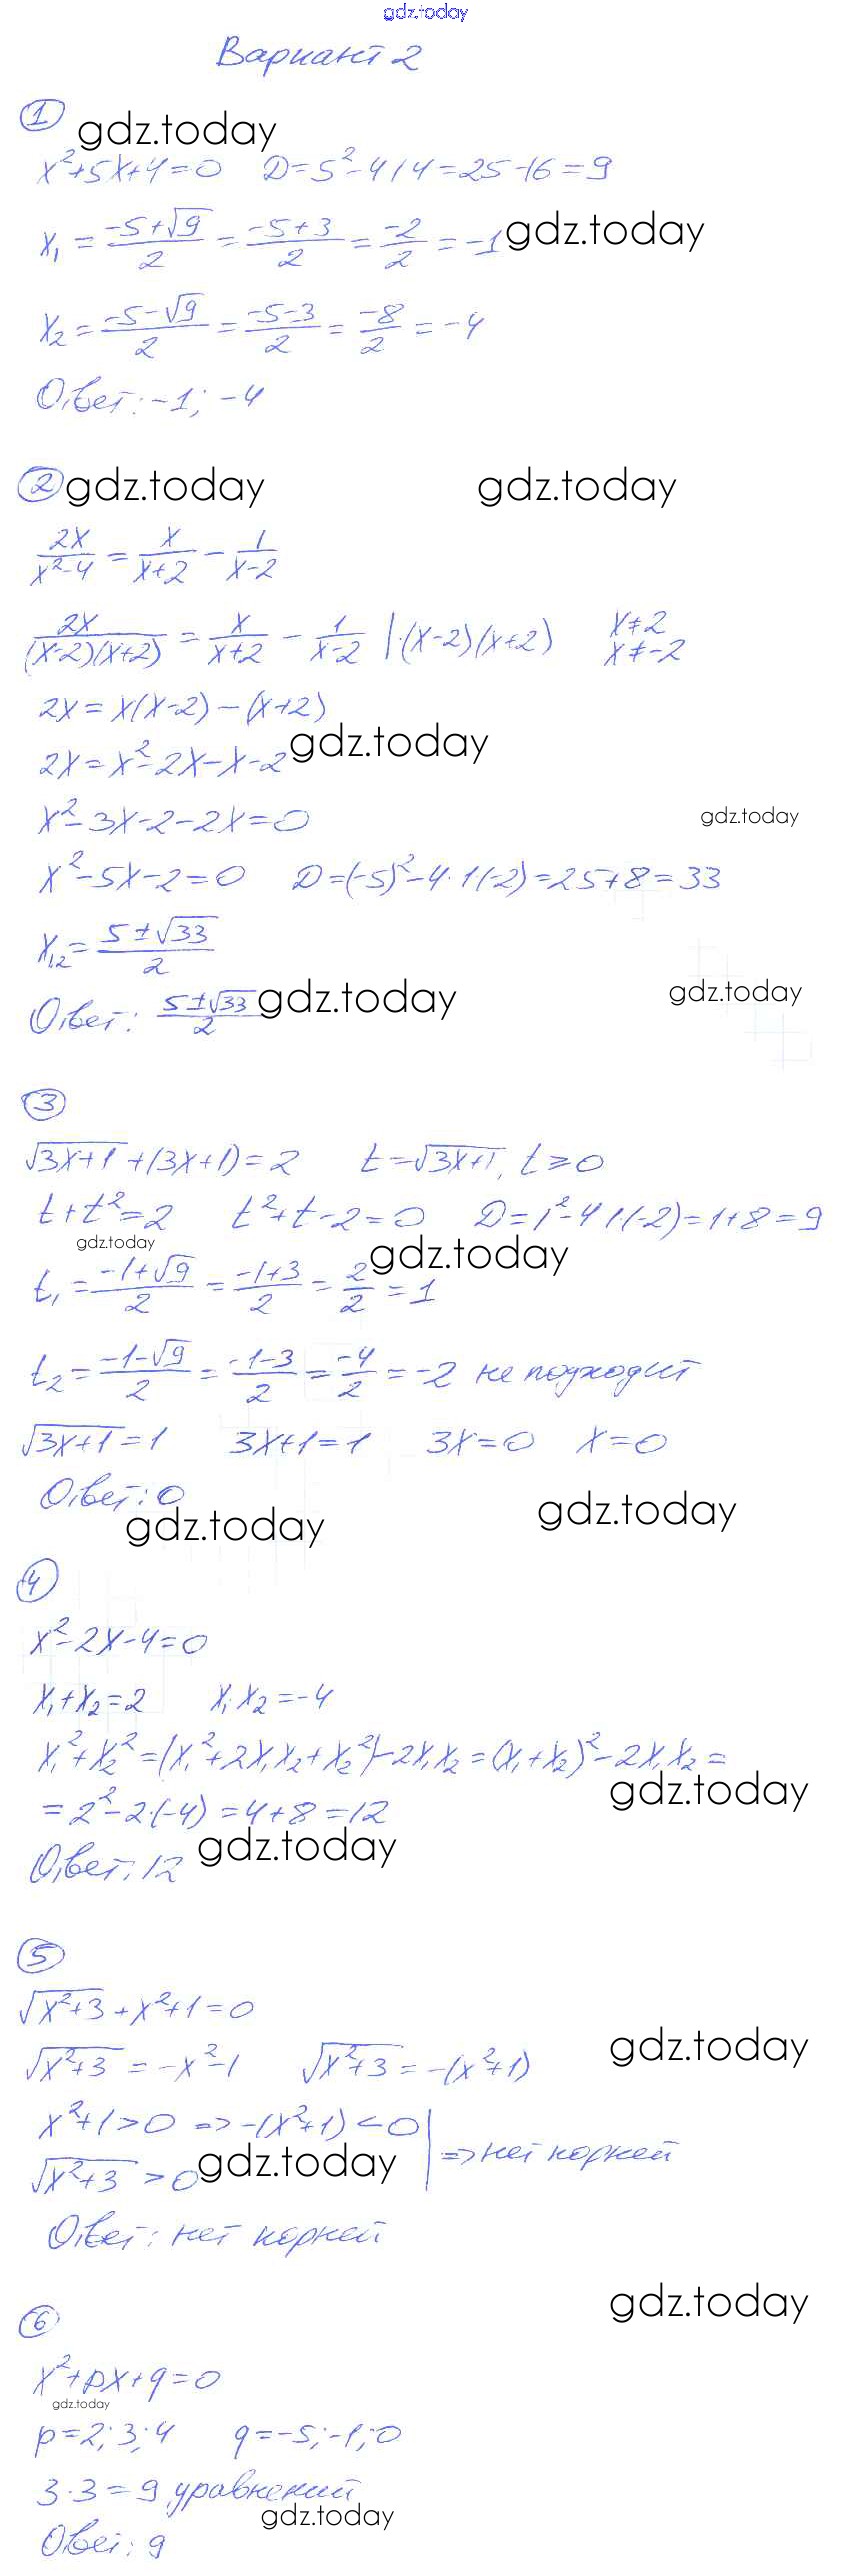 gdz.today
Вариант 2
1
gdz.today
x²+5x+4=0 D=5²-4·1·4=25-16=9
x₁ = (-5+√9)/2 = (-5+3)/2 = -2/2 = -1 gdz.today
x₂ = (-5-√9)/2 = (-5-3)/2 = -8/2 = -4
Ответ: -1; -4
2 gdz.today gdz.today
2x/(x²-4) = x/(x+2) - 1/(x-2)
2x/((x-2)(x+2)) = x/(x+2) - 1/(x-2) |·(x-2)(x+2) x≠2 x≠-2
2x = x(x-2) - (x+2)
2x = x²-2x-x-2 gdz.today
x²-3x-2-2x=0 gdz.today
x²-5x-2=0 D=(-5)²-4·1·(-2)=25+8=33
x₁,₂ = (5±√33)/2
Ответ: (5±√33)/2 gdz.today gdz.today
3
√(3x+1) + (3x+1) = 2 t=√(3x+1), t≥0
t+t²=2 t²+t-2=0 D=1²-4·1·(-2)=1+8=9
gdz.today gdz.today
t₁ = (-1+√9)/2 = (-1+3)/2 = 2/2 = 1
t₂ = (-1-√9)/2 = (-1-3)/2 = -4/2 = -2 не подходит
√(3x+1)=1 3x+1=1 3x=0 x=0
Ответ: 0
gdz.today gdz.today
4
x²-2x-4=0
x₁+x₂=2 x₁·x₂=-4
x₁²+x₂²=(x₁²+2x₁x₂+x₂²)-2x₁x₂=(x₁+x₂)²-2x₁x₂=
gdz.today
=2²-2·(-4)=4+8=12
Ответ: 12 gdz.today
5
√(x²+3)+x²+1=0
√(x²+3) = -x²-1 √(x²+3) = -(x²+1) gdz.today
x²+1>0 => -(x²+1)<0
√(x²+3) > 0 gdz.today | => нет корней
Ответ: нет корней
gdz.today
6
x²+px+q=0
gdz.today
p=2; 3; 4 q=-5; -1; 0
3·3=9 уравнений
gdz.today
Ответ: 9